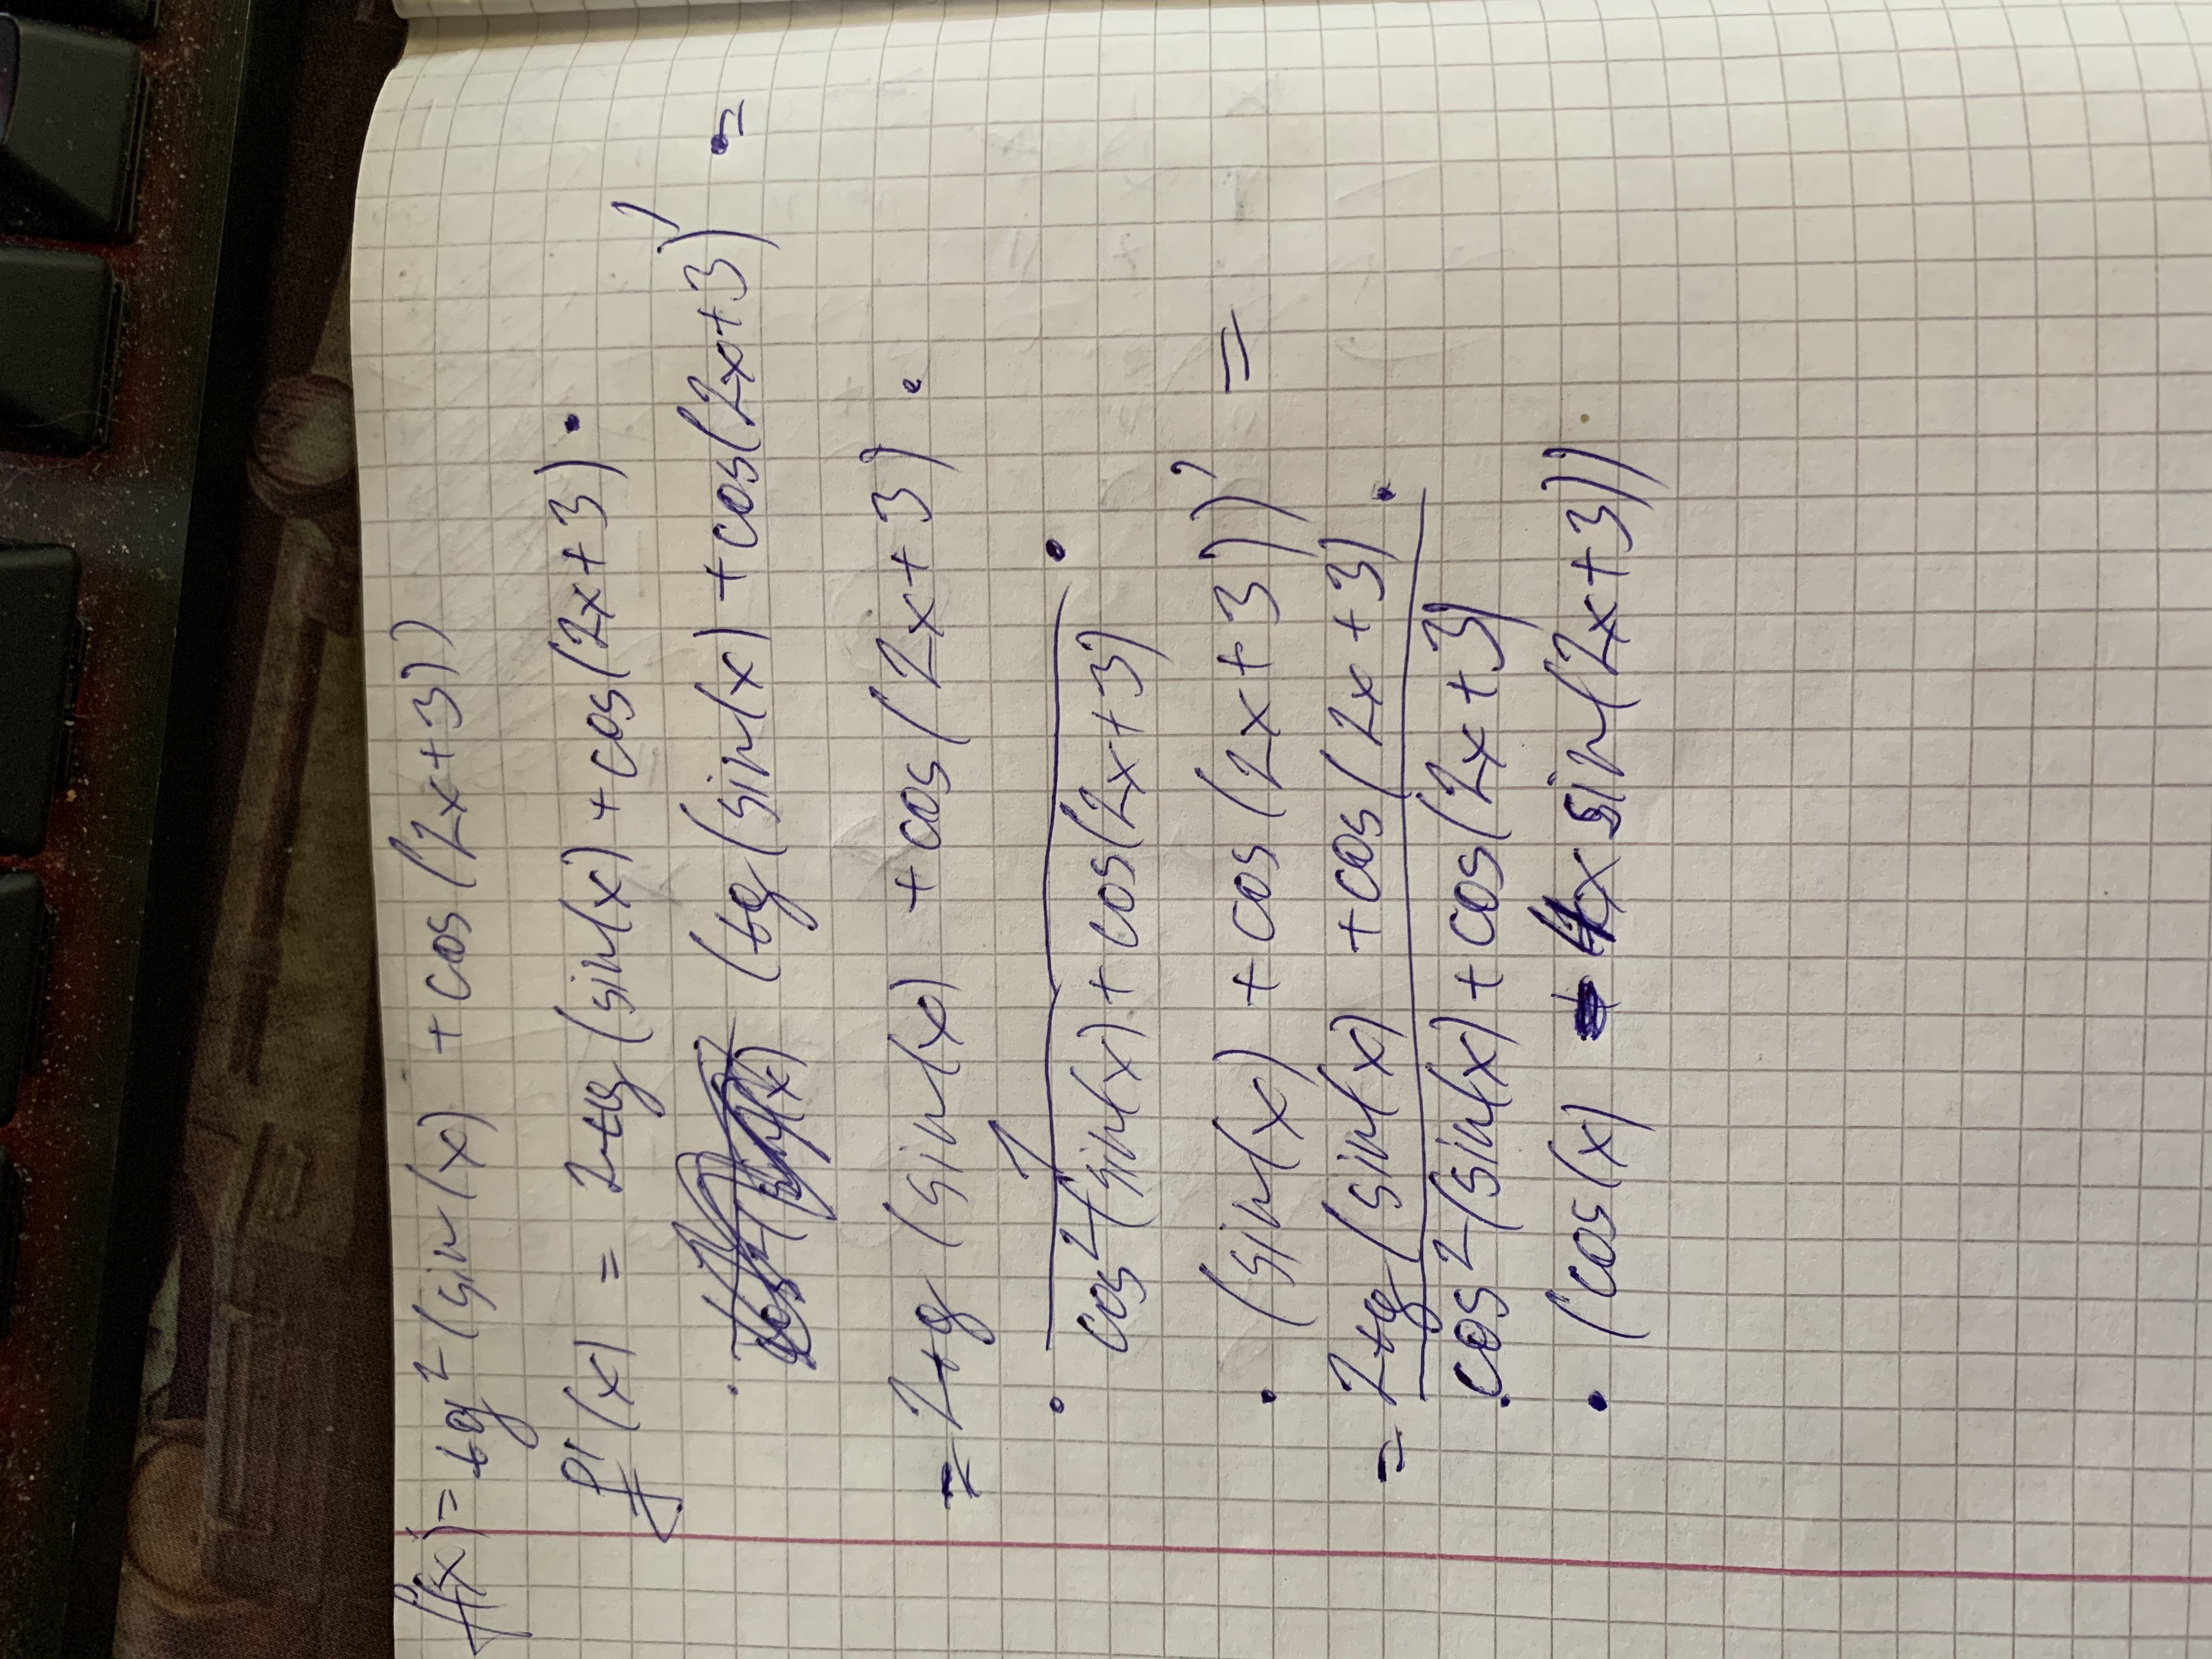 f(x) = tg² (sin(x) + cos(2x+3))
f'(x) = 2tg (sin(x) + cos(2x+3) ·
· (tg (sin(x) + cos(2x+3)' =
= 2tg (sin(x) + cos(2x+3) ·
· 1 ·
cos² (sin(x) + cos(2x+3)
· (sin(x) + cos(2x+3))' =
= 2tg (sin(x) + cos(2x+3) ·
cos² (sin(x) + cos(2x+3)
· (cos(x) - x sin(2x+3))